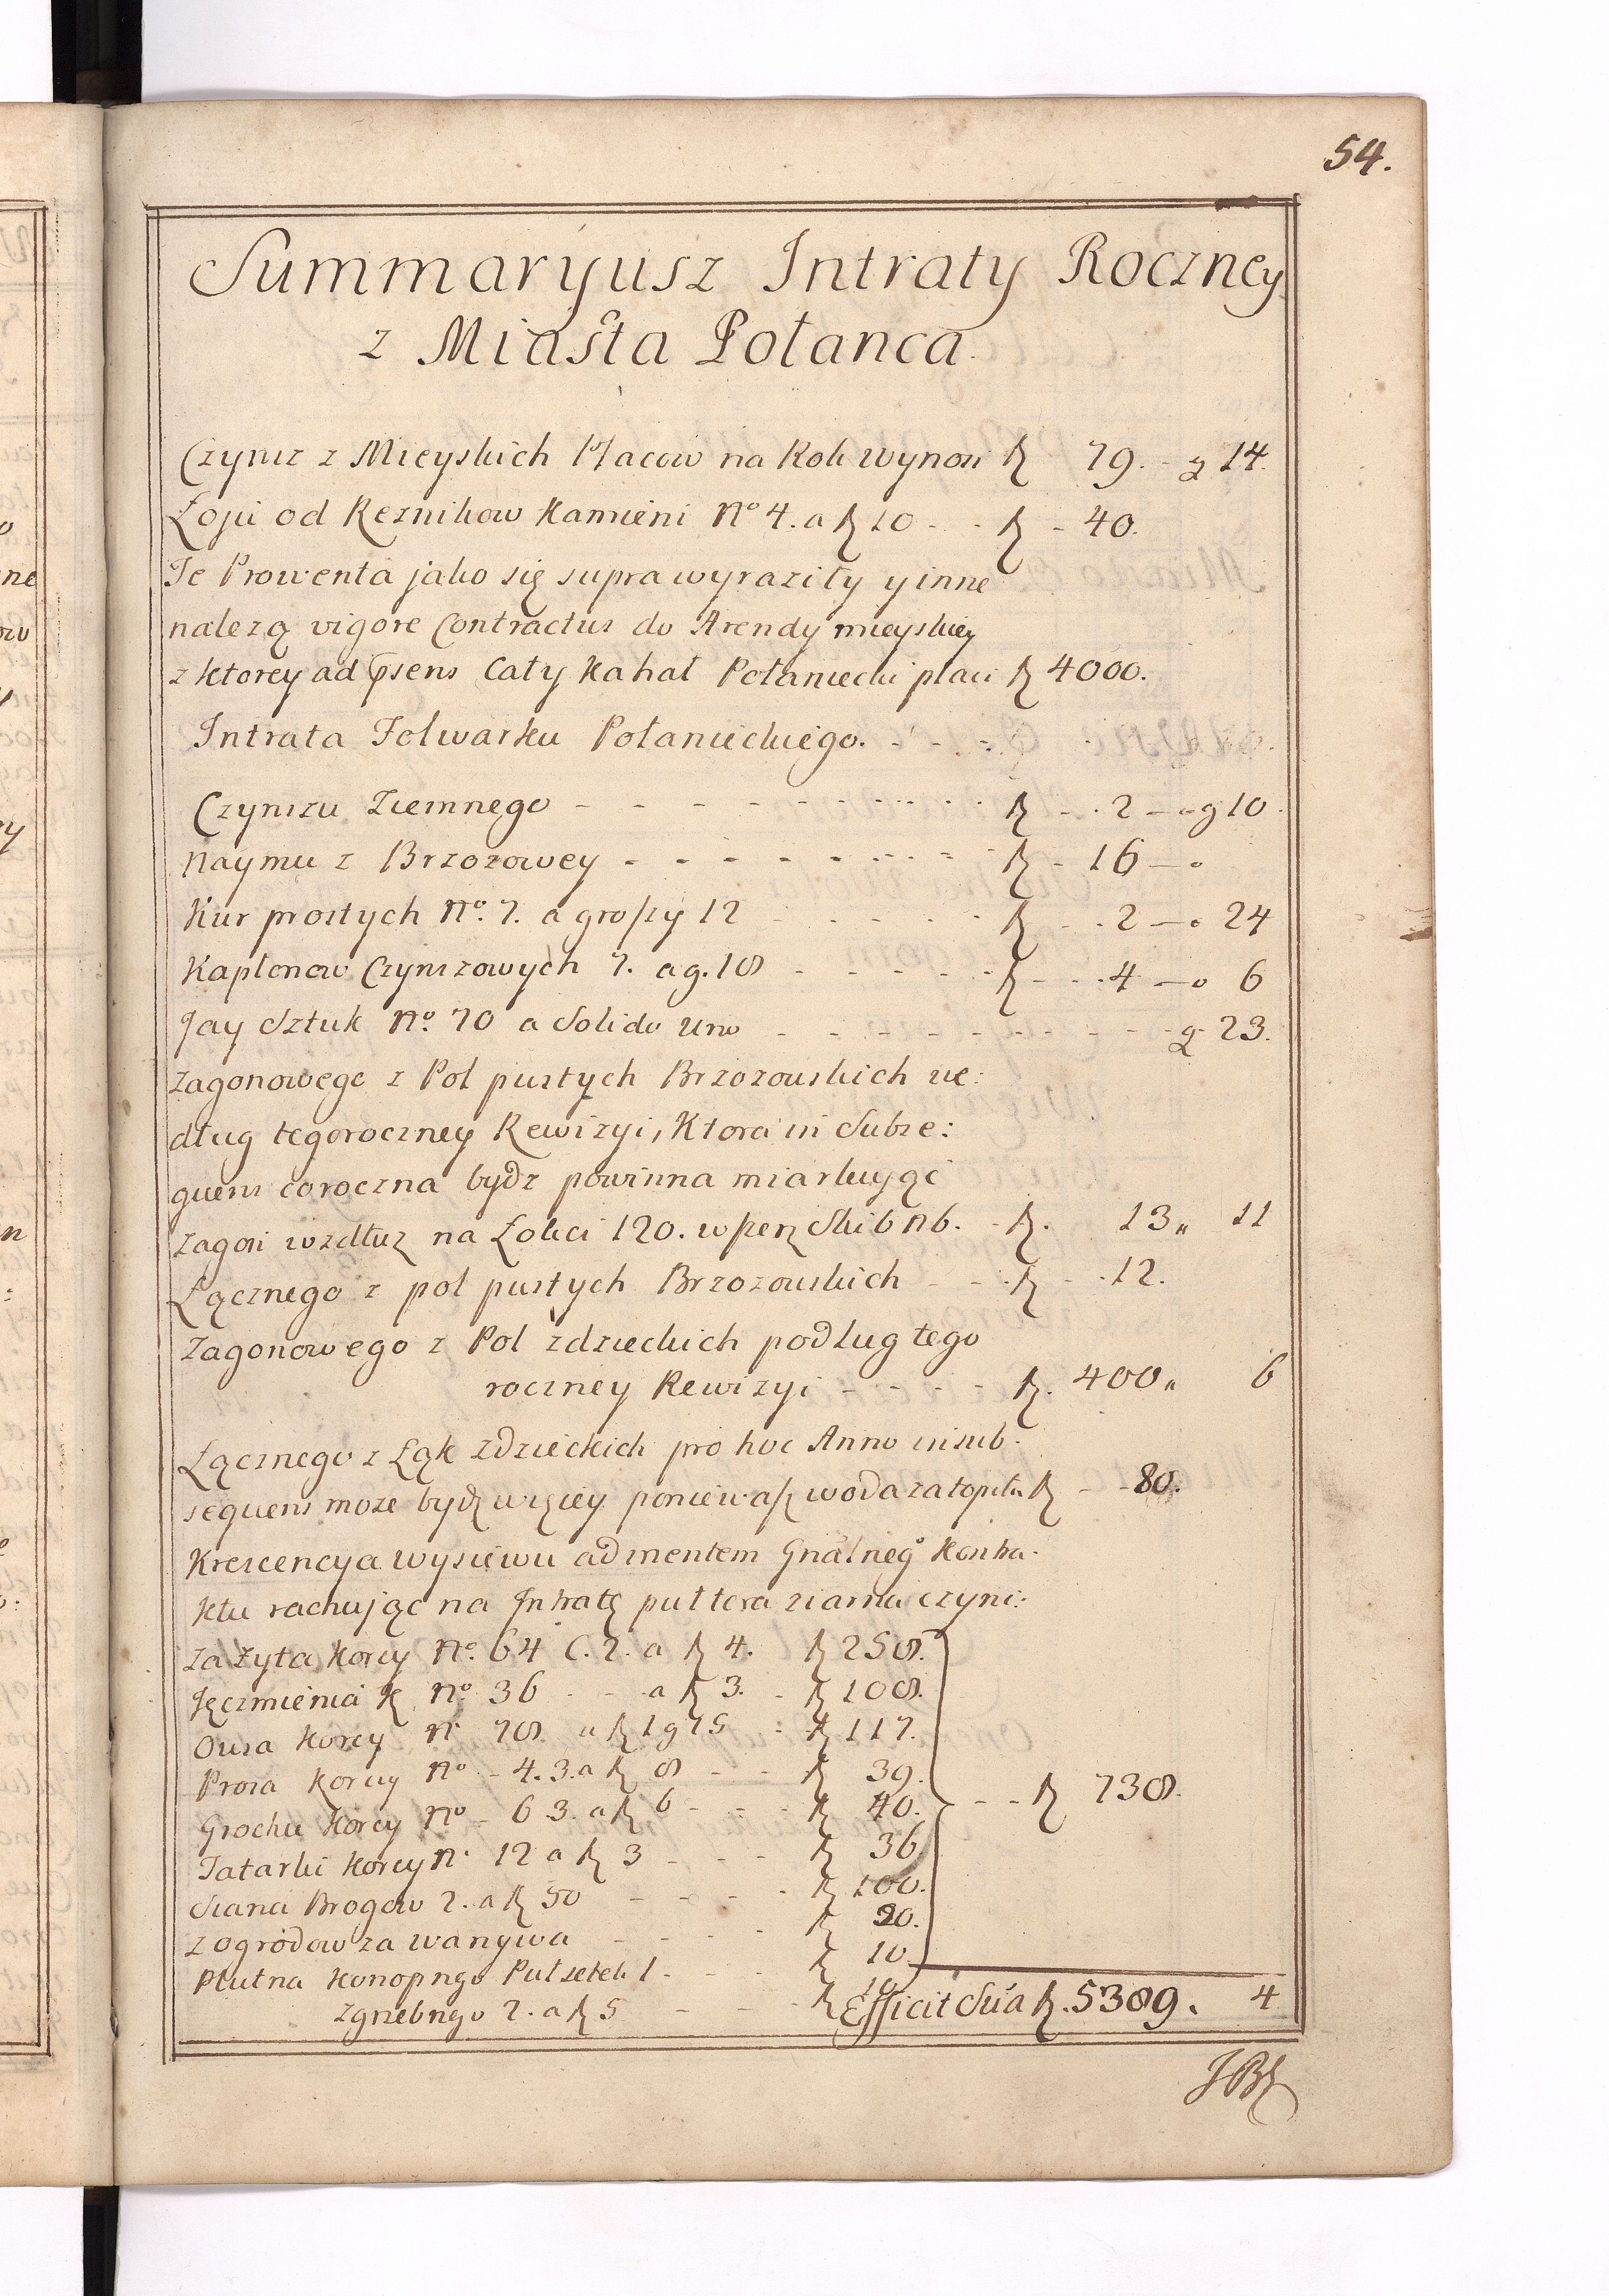 54.
Summaryusz Intraty Roczney
z Miasta Połanca.
Czynsz z Mieyskich Placow na Rok wynosi zł 79. g 14.
Łoju od Reznikow Kamieni No 4. a zł 10 - - zł - 40.
Te Prowenta jako się supra wyraziły y inne
nalezą vigore Contractus do Arendy mieyskiey
z ktorey ad psens Cały Kahał Połaniecki płaci zł 4000.
Intrata Folwarku Połanieckiego. - - -
Czynszu Ziemnego - - - - - - - - zł - . 2 - g 10.
Naymu z Brzozowey - - - - - - - - zł - 16 -
Kur prostych No. 7. a groszy 12 - - - - - zł - . 2 - 24
Kapłonow Czynszowych 7. a g. 18 - - - - - zł - - . 4 - 6
Jay Sztuk No. 70 a Solido Uno - - - - - - - - g 23.
Zagonowego z Pol pustych Brzozowskich we:
dług tegoroczney Rewizyi, Ktora in Subse:
quens coroczna bydz powinna miarkując
Zagon wzdłuz na Łokci 120. wszerz Skib N 6. - zł. 13 " 11
Łącznego z pol pustych Brzozowskich - - zł - . 12.
Zagonowego z Pol zdzieckich podług tego
roczney Rewizyi - - - - zł. 400 " 6
Łącznego z Łąk Zdzieckich pro hoc Anno in sub-
sequens moze bydz więcey poniewasz woda zatopiła zł - - 80.
Krescencya wysiewu ad mentem Gnalnego Kontra-
ktu rachując na Intratę puł tera ziarna czyni:
Za Zyta Korcy No. 64 C. 2. a zł 4. zł 258.
Jęczmienia K No 36 - - a zł 3. - zł 108.
Owsa Korcy N. 78 a zł 1 g 15 - zł 117.
Prosa Korcy No - 4. 3. a zł 8 - - zł 39.
Grochu Korcy No - 6 3. a zł 6 - - - zł 40. - - zł 738.
Tatarki Korcy N. 12 a zł 3 - - - zł 36
Siana Brogow 2. a zł 50 - - - - zł 100.
z ogrodow za warzywa - - - - zł 20.
Płutna Konopngo Pułsetek 1 - - - zł 10.
Zgrzebngo 2. a zł 5 - - - zł 10
Efficit Sua zł. 5389. 4